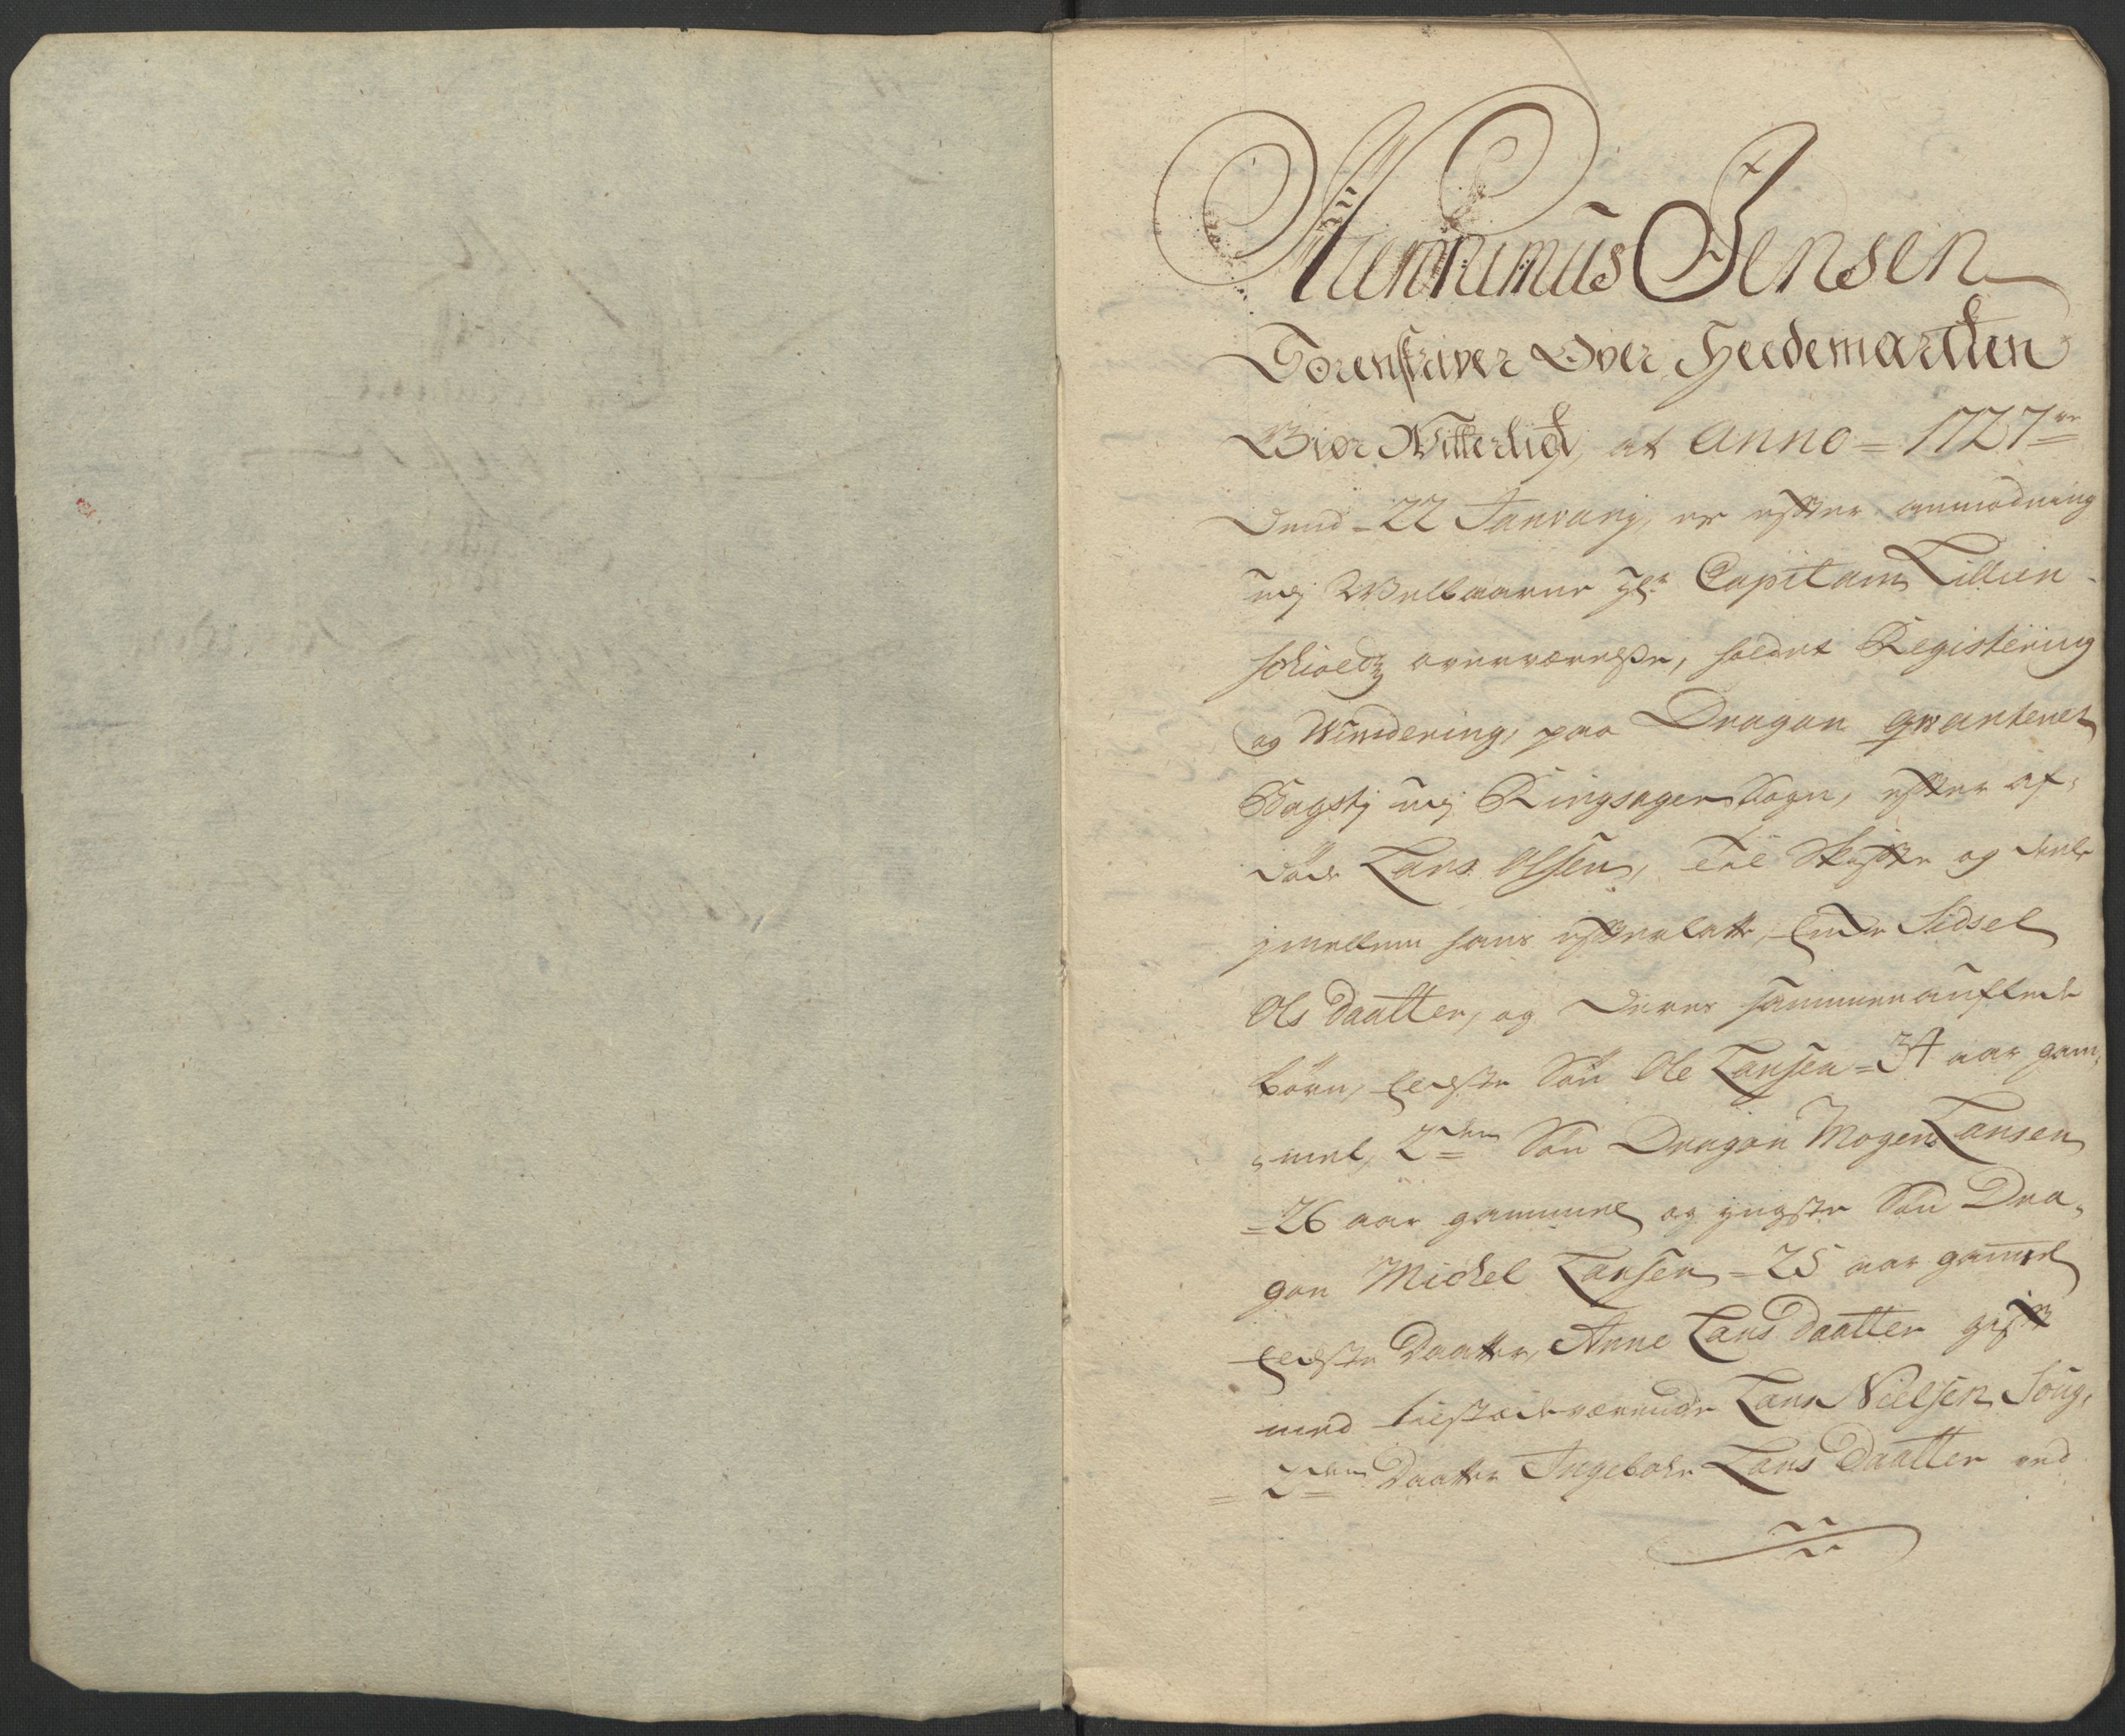 Hierinimus Jensen
Sorenskriver Over Heedemarcken
Giør Witterligt, at Anno = 1727 de
Dend 22 January, er efter anmodning
udj Welbaarne Hr Capitain Lillien-
schiolds overværelse, holdet Registering
og Wurdering, paa Dragon qvarteret
Bagstj udj Ringsager Sogn, efter af-
døde Lars Olsen, til Skifte og deele
jmellem hans efterlatte Encke Sidsel
Ols Daatter, og deres sammen auflede
børn, Eldste Søn Ole Larsen = 34 aar gam-
mel, 2den Søn Dragon Mogens Larsen
= 26 aar gammel og yngste Søn Dra-
gon Michel Larsen = 25 aar gammel
Eldste Daatter, Anne Lars Daatter gift
med tilstædeværende Lars Nielsen
= 2den Daatter Ingebor Lars Daatter ved